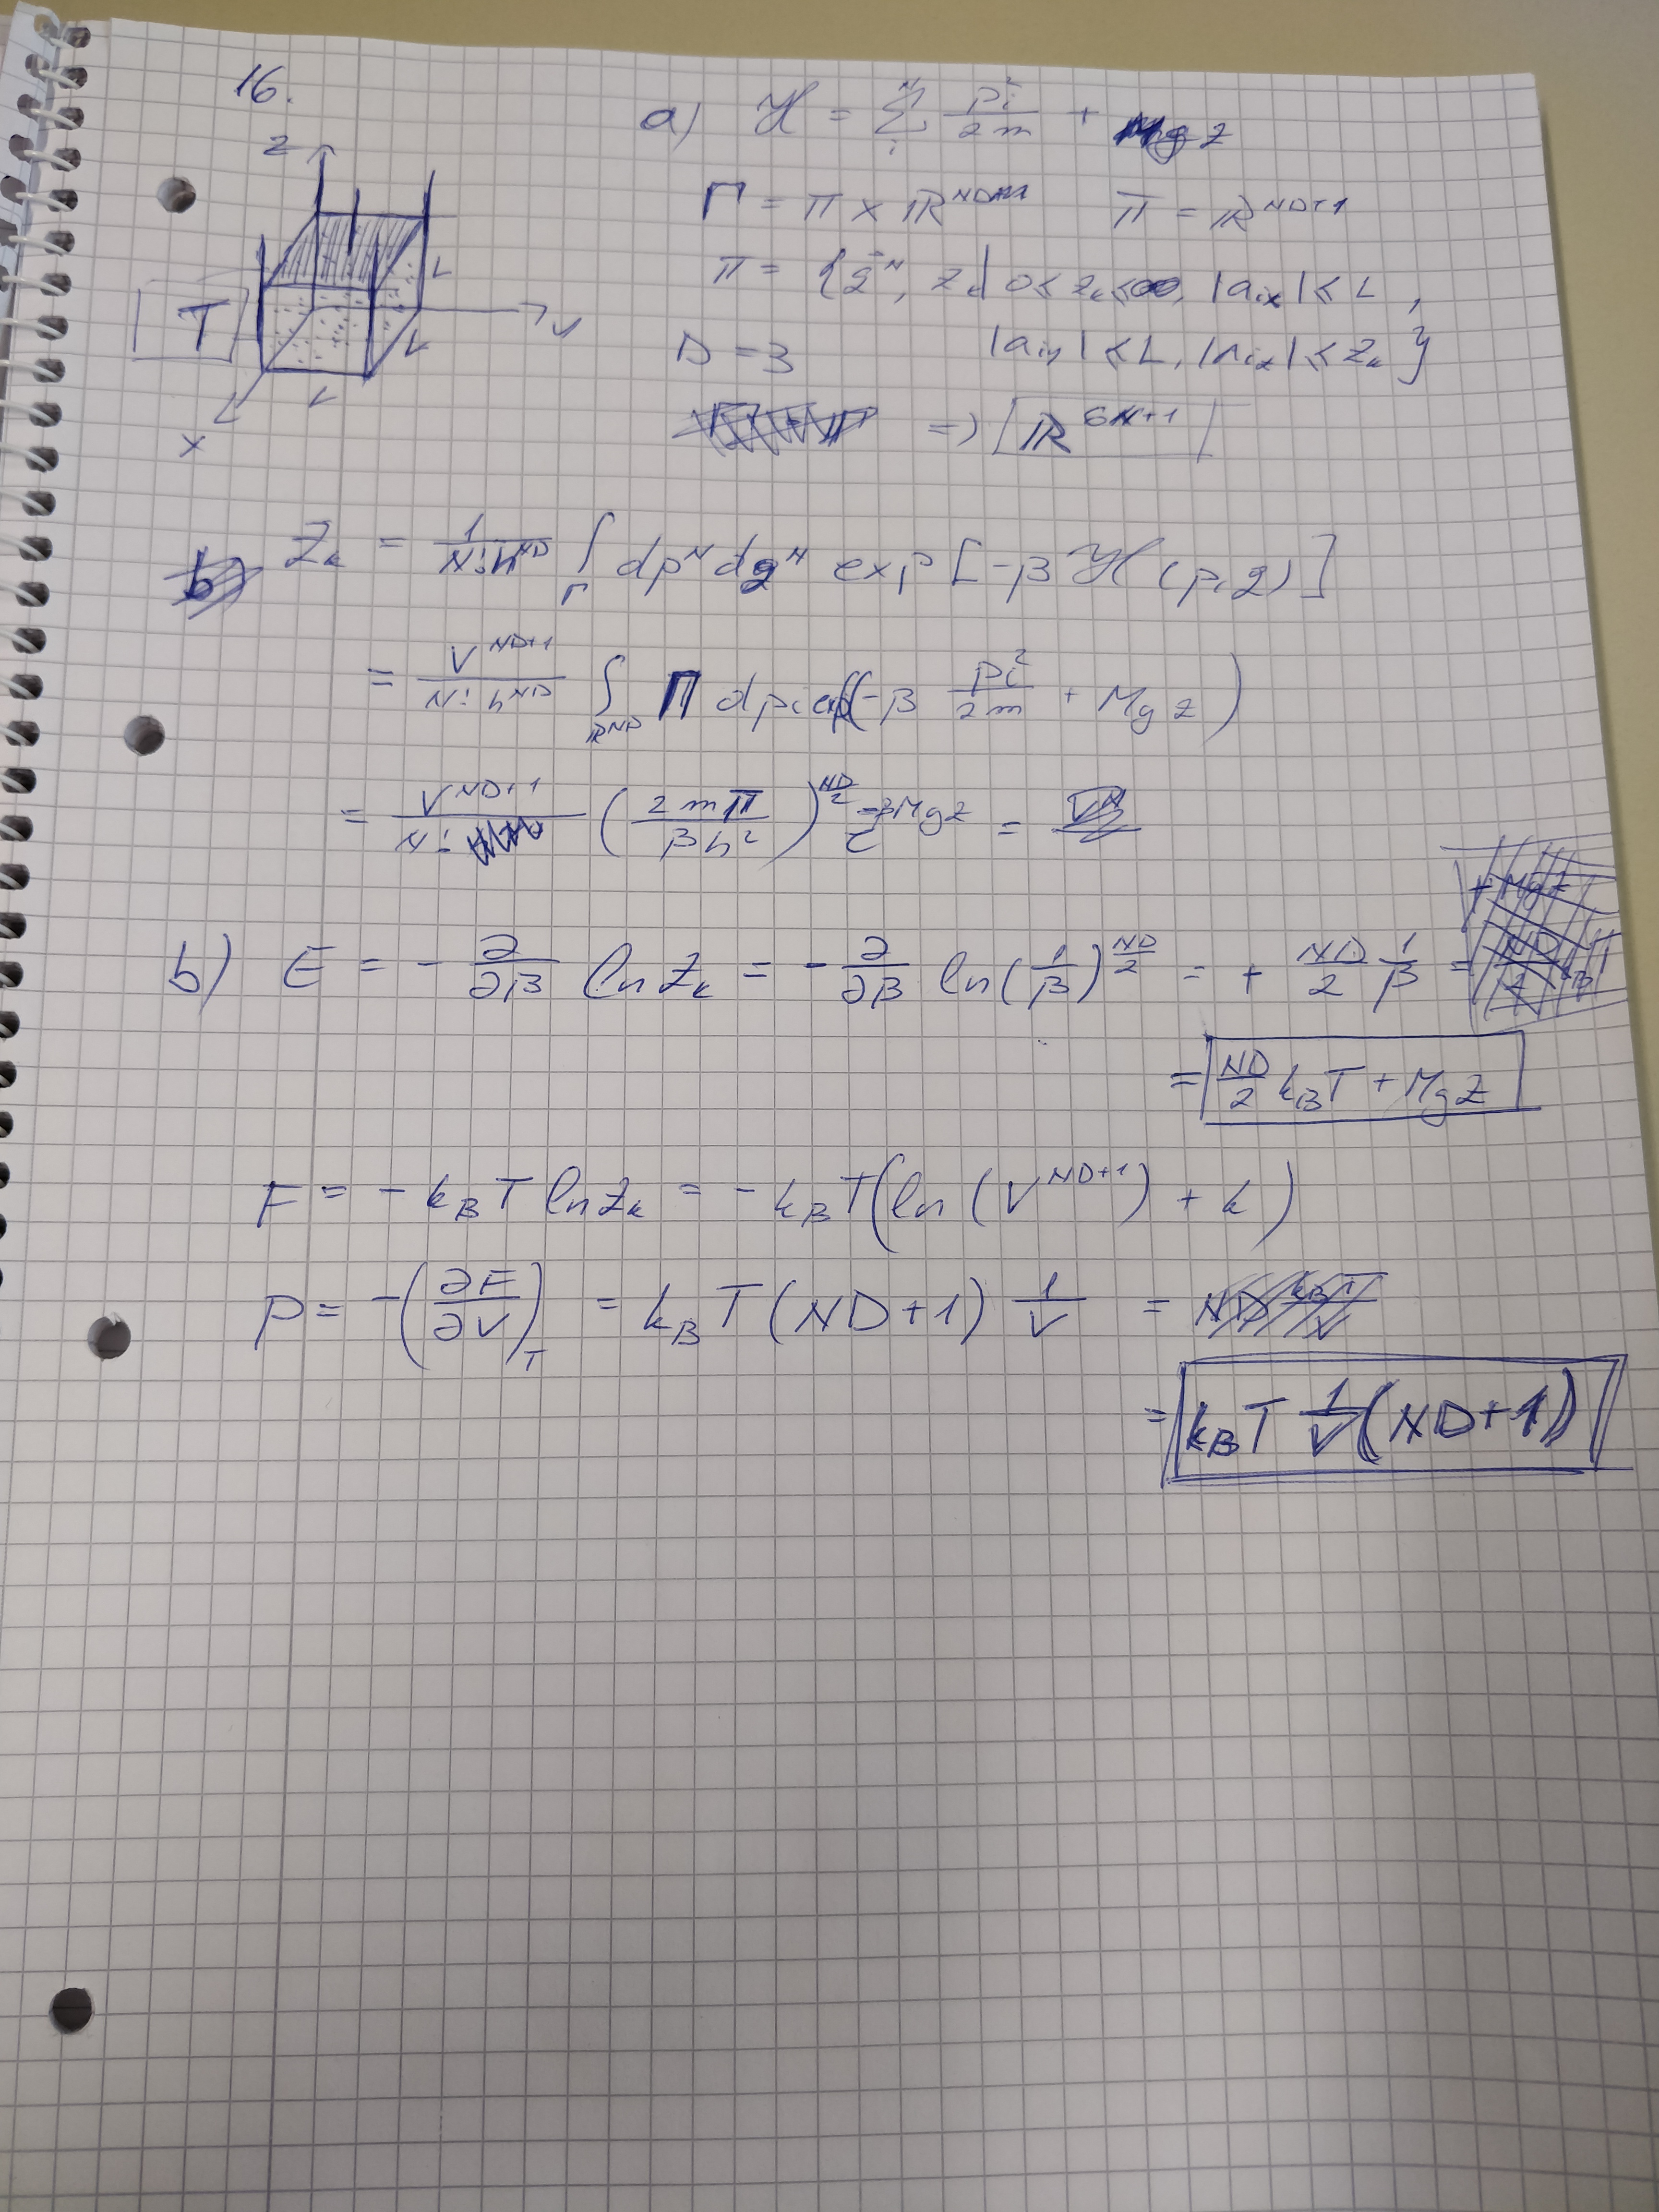 16.
z
T
L
L
L
y
x
a) H = Σ_i^N p_i²/2m + Mgz
Γ = π × ℝ^ND π = ℝ^ND+1
π = { q^N, z_k | 0 ≤ z_k ≤ ∞, |q_ix| ≤ L,
D = 3 |q_iy| ≤ L, |q_iz| ≤ z_k }
=> ℝ^6N+1
Z_k = 1/(N! h^ND) ∫_Γ dp^N dq^N exp[-β H(p,q)]
= V^ND+1/(N! h^ND) ∫_ℝ^ND Π dp_i exp(-β p_i²/2m + Mgz)
= V^ND+1/N! (2mπ/βh²)^ND/2 e^-βMgz =
b) E = - ∂/∂β ln Z_k = - ∂/∂β ln(1/β)^ND/2 = + ND/2 1/β =
= ND/2 k_B T + Mgz
F = - k_B T ln Z_k = - k_B T (ln(V^ND+1) + k)
p = -(∂F/∂V)_T = k_B T (ND+1) 1/V =
= k_B T 1/V (ND+1)